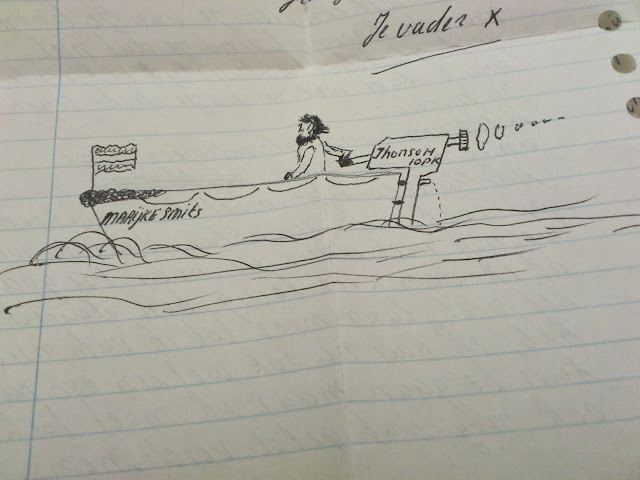 Je vader x
Jhonson
10PK
MARIJKE Smits